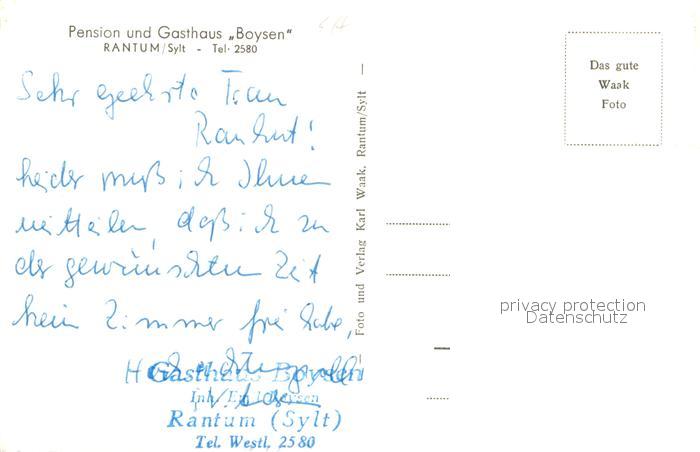 Pension und Gasthaus „Boysen“
RANTUM/Sylt - Tel· 2580
Sehr geehrte Frau
Rankut!
Leider muß ich Ihnen
mitteilen, daß ich zu
der gewünschten Zeit
kein Zimmer frei habe,
Hochachtungsvoll
Gasthaus Boysen
Inh. Boysen
Rantum (Sylt)
Tel. Westl. 2580
Foto und Verlag Karl Waak, Rantum/Sylt
Das gute
Waak
Foto
privacy protection
Datenschutz